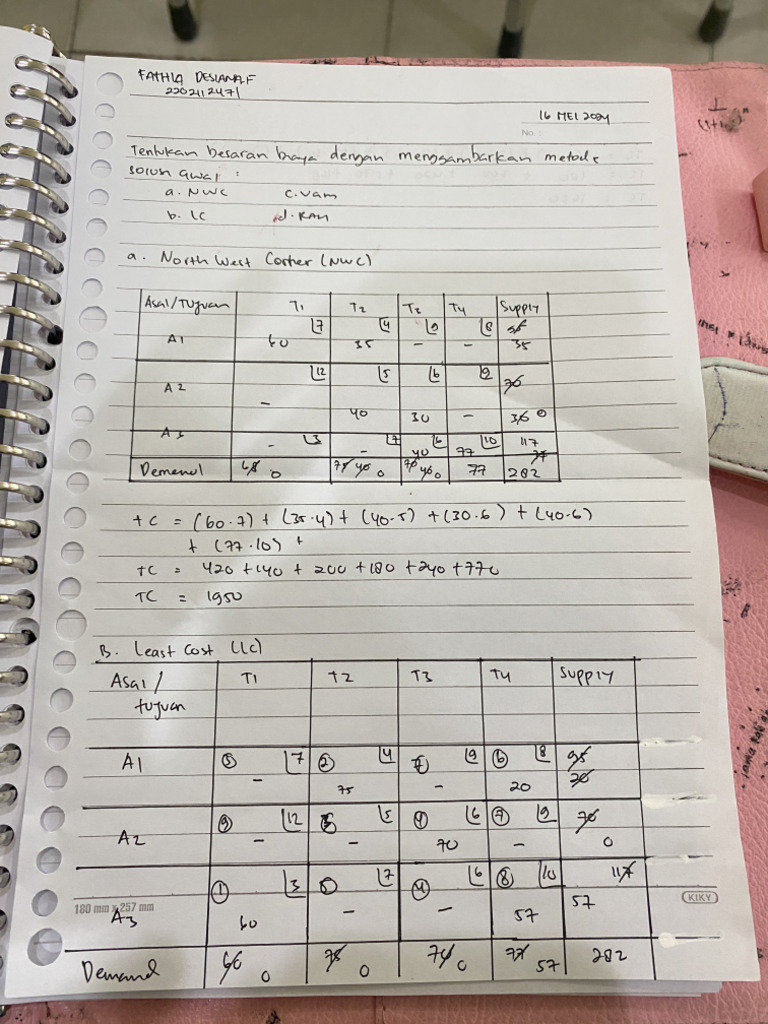 FATHIA DESIANA.F
2202112471
16 MEI 2024
No.:
Tentukan besaran biaya dengan menggambarkan metode
solusi awal :
a. NWC c. Vam
b. LC d. RAM
a. North West Corner (NWC)
Asal/Tujuan T1 T2 T3 T4 Supply
7 4 9 8 95
A1 60 35 - - 35
12 5 6 9 70
A2
- 40 30 - 30 0
A3 - 3 - 7 40 6 77 10 117 77
Demand 60 0 75 40 0 70 40 0 77 282
TC = (60.7) + (35.4) + (40.5) + (30.6) + (40.6)
+ (77.10) +
TC = 420 + 140 + 200 + 180 + 240 + 770
TC = 1950
B. Least Cost (LC)
Asal / T1 T2 T3 T4 Supply
tujuan
A1 5 7 2 4 7 9 6 8 95
- 75 - 20 20
9 12 3 5 4 6 7 9 70
A2 - - 70 - 0
1 3 5 7 4 6 8 10 117
180 mm x 257 mm
A3 60 - - 57 57
KIKY
Demand 60 0 75 0 70 0 77 57 282